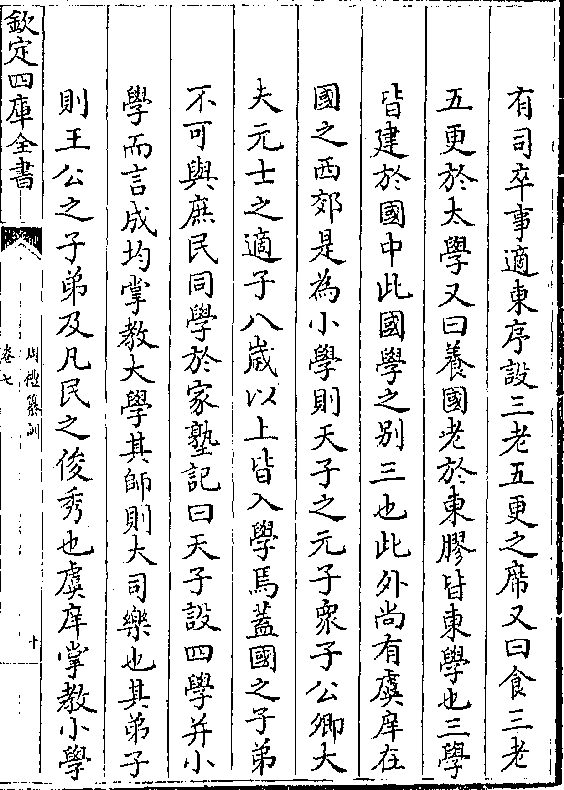 有司卒事適東序設三老五更之席又曰食三老
五更於太學又曰養國老於東膠皆東學也三學
皆建於國中此國學之别三也此外尚有虞庠在
國之西郊是為小學則天子之元子衆子公卿大
夫元士之適子八嵗以上皆入學焉蓋國之子弟
不可與庶民同學於家塾記曰天子設四學并小
學而言成均掌教大學其師則大司樂也其弟子
則王公之子弟及凡民之俊秀也虞庠掌教小學
欽定四庫全書
周禮纂訓
卷七
十